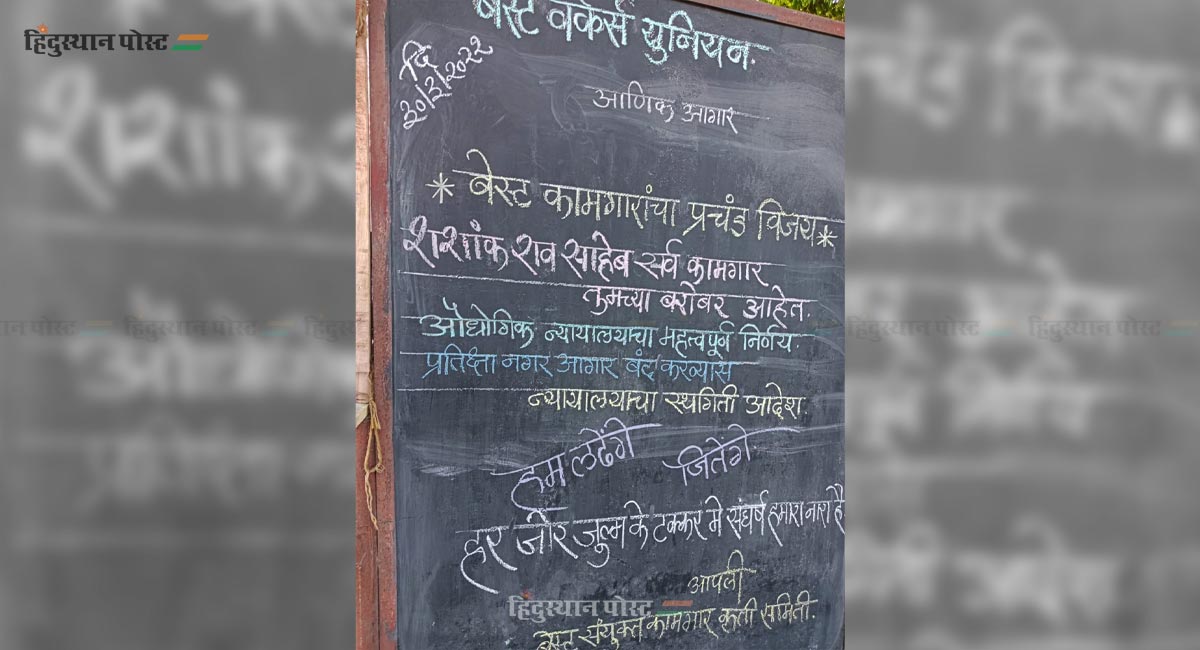 हिंदुस्थान पोस्ट
बेस्ट वर्कर्स युनियन.
दि
२०/३/२०२२
आणिक आगार
* बेस्ट कामगारांचा प्रचंड विजय *
शशांक राव साहेब सर्व कामगार
तुमच्या बरोबर आहेत.
औद्योगिक न्यायालयाचा महत्वपूर्व निर्णय.
प्रतिक्षा नगर आगार बंद करण्यास
न्यायालयाचा स्थगिती आदेश.
हम लढेंगे जितेंगे
हर जोर जुल्म के टक्कर मे संघर्ष हमारा नारा है
आपली
हिंदुस्थान पोस्ट
बेस्ट संयुक्त कामगार कृती समिती.